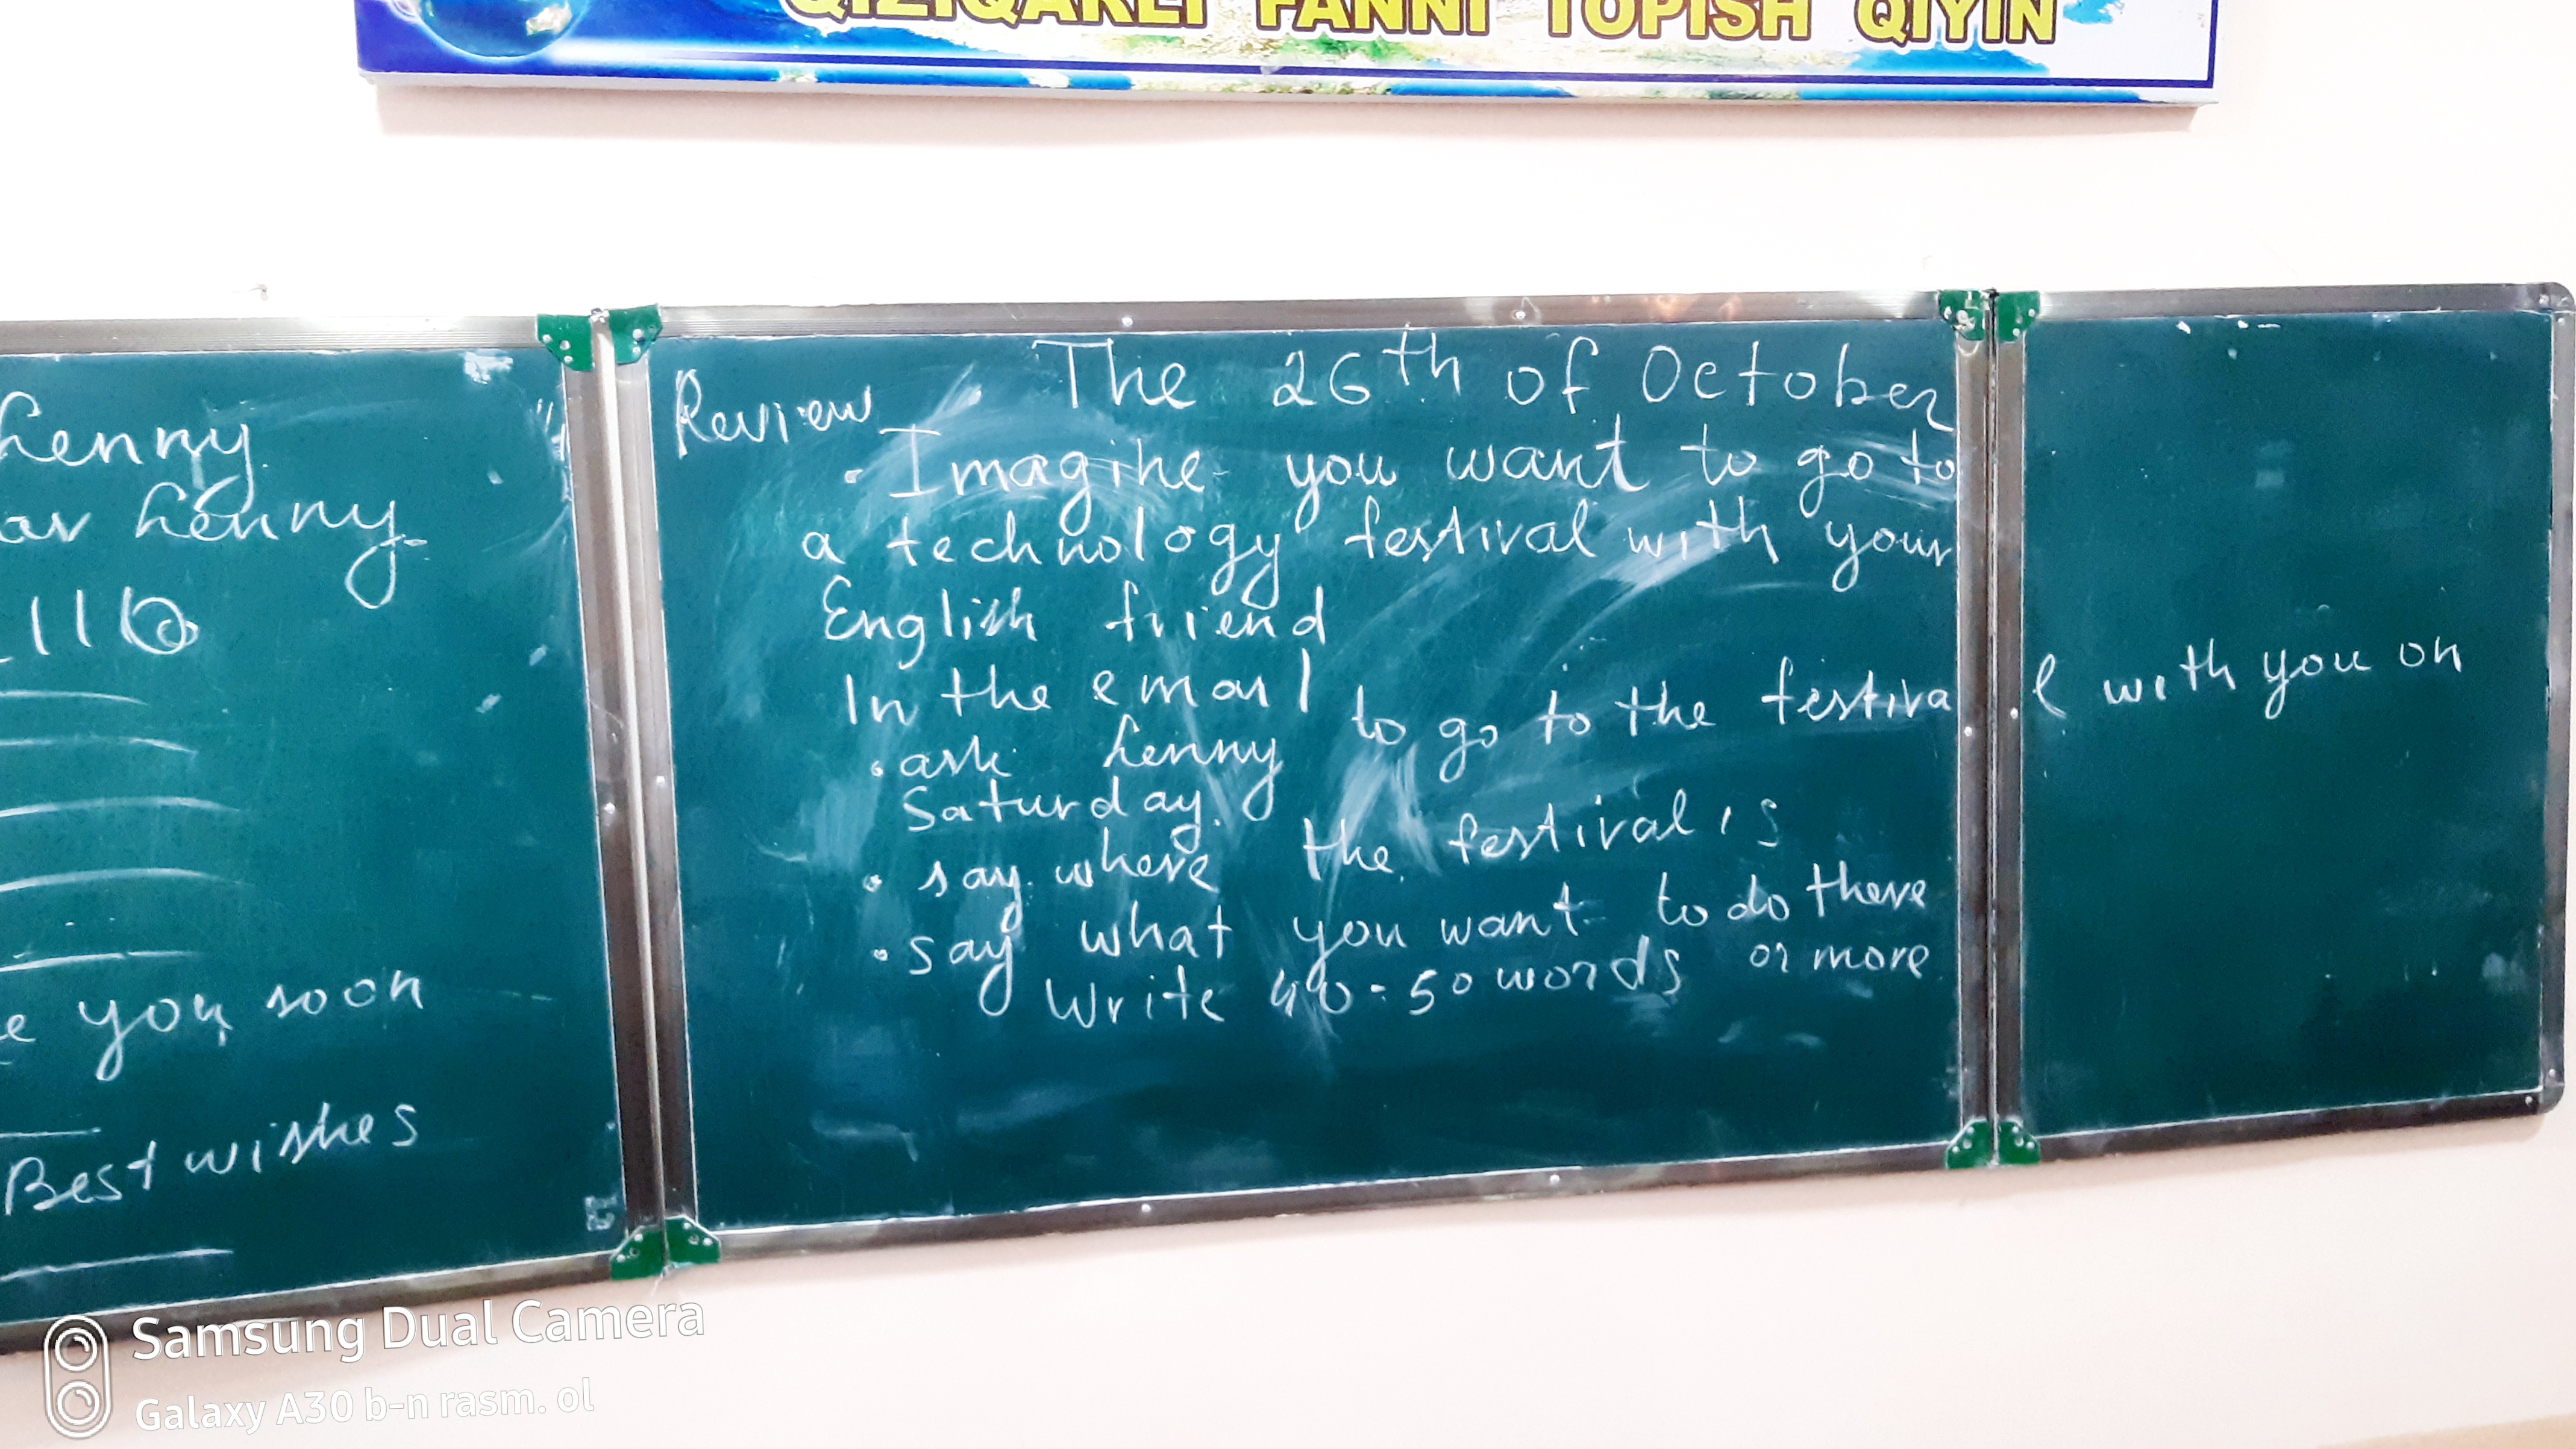 QIZIQARLI FANNI TOPISH QIYIN
henny
ar henny
soon
you
Best wishes
Review
The 26th of October
Imagine you want to go to
a technology festival with your
English friend
In the email
• ask henny to go to the festival with you on
Saturday.
• say where the festival is
• say what you want to do there
Write 40-50 words or more
Samsung Dual Camera
Galaxy A30 b-n rasm. ol